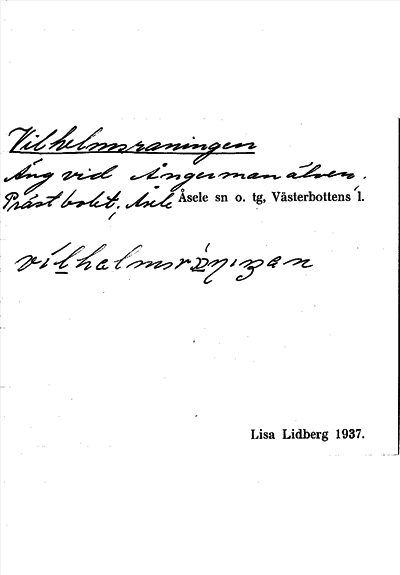 Vilhelmsraningen
Äng vid Ångermanälven.
Prästbolet, Åsele Åsele sn o. tg, Västerbottens l.
Lisa Lidberg 1937.